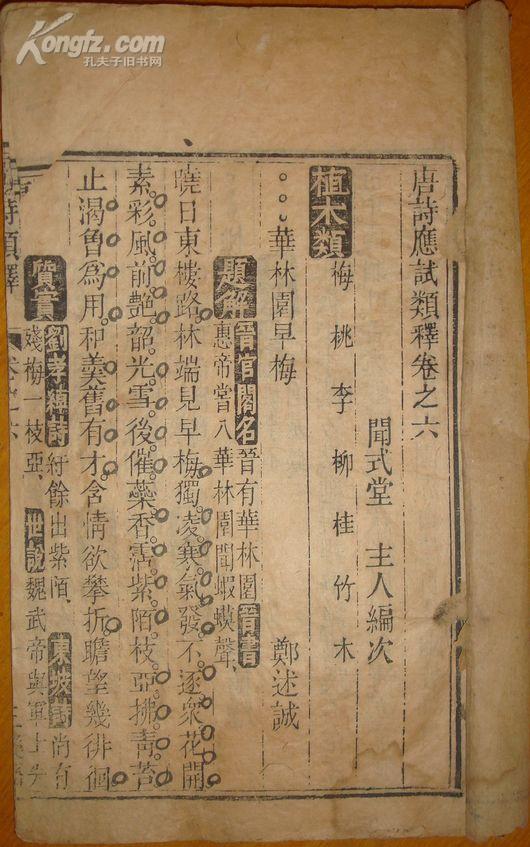 Kongfz.com
孔夫子旧书网
唐詩應試類釋卷之六
聞式堂 主人編次
植木類
梅 桃 李 柳 桂 竹 木
華林園早梅 鄭述誠
題解 晉宮閣名 晉有華林園 晉書
惠帝嘗入華林園聞蝦蟆聲
曉日東樓路林端見早梅獨凌寒氣發不逐衆花開
素彩風前艷韶光雪後催蘂香霑紫陌枝亞拂青苔
止渴曾爲用和羹舊有才含情欲攀折瞻望幾徘徊
質實 劉孝綽詩 紆餘出紫陌 東坡詩 尚有
殘梅一枝亞 世說 魏武帝與軍士失
詩類釋 卷之六